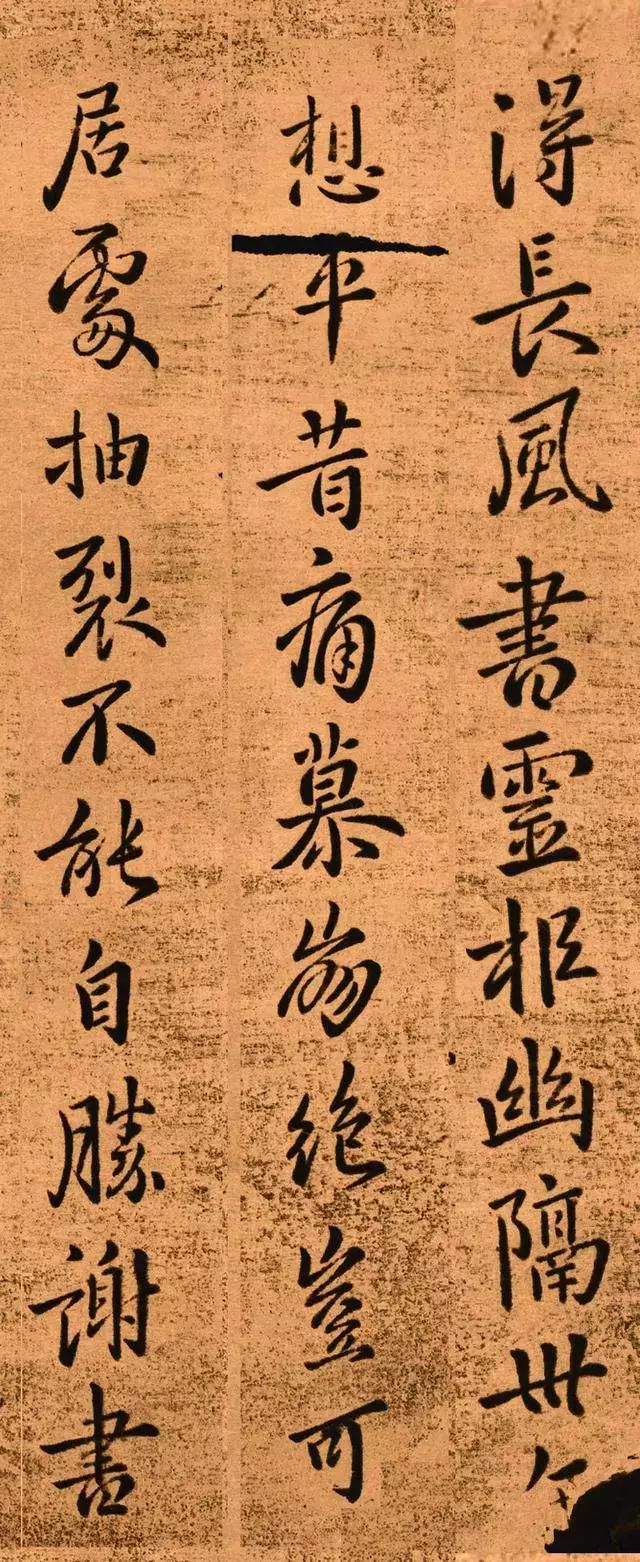 得長風書靈柩幽隔卅
想平昔痛慕崩絕豈可
居處抽裂不能自勝謝書